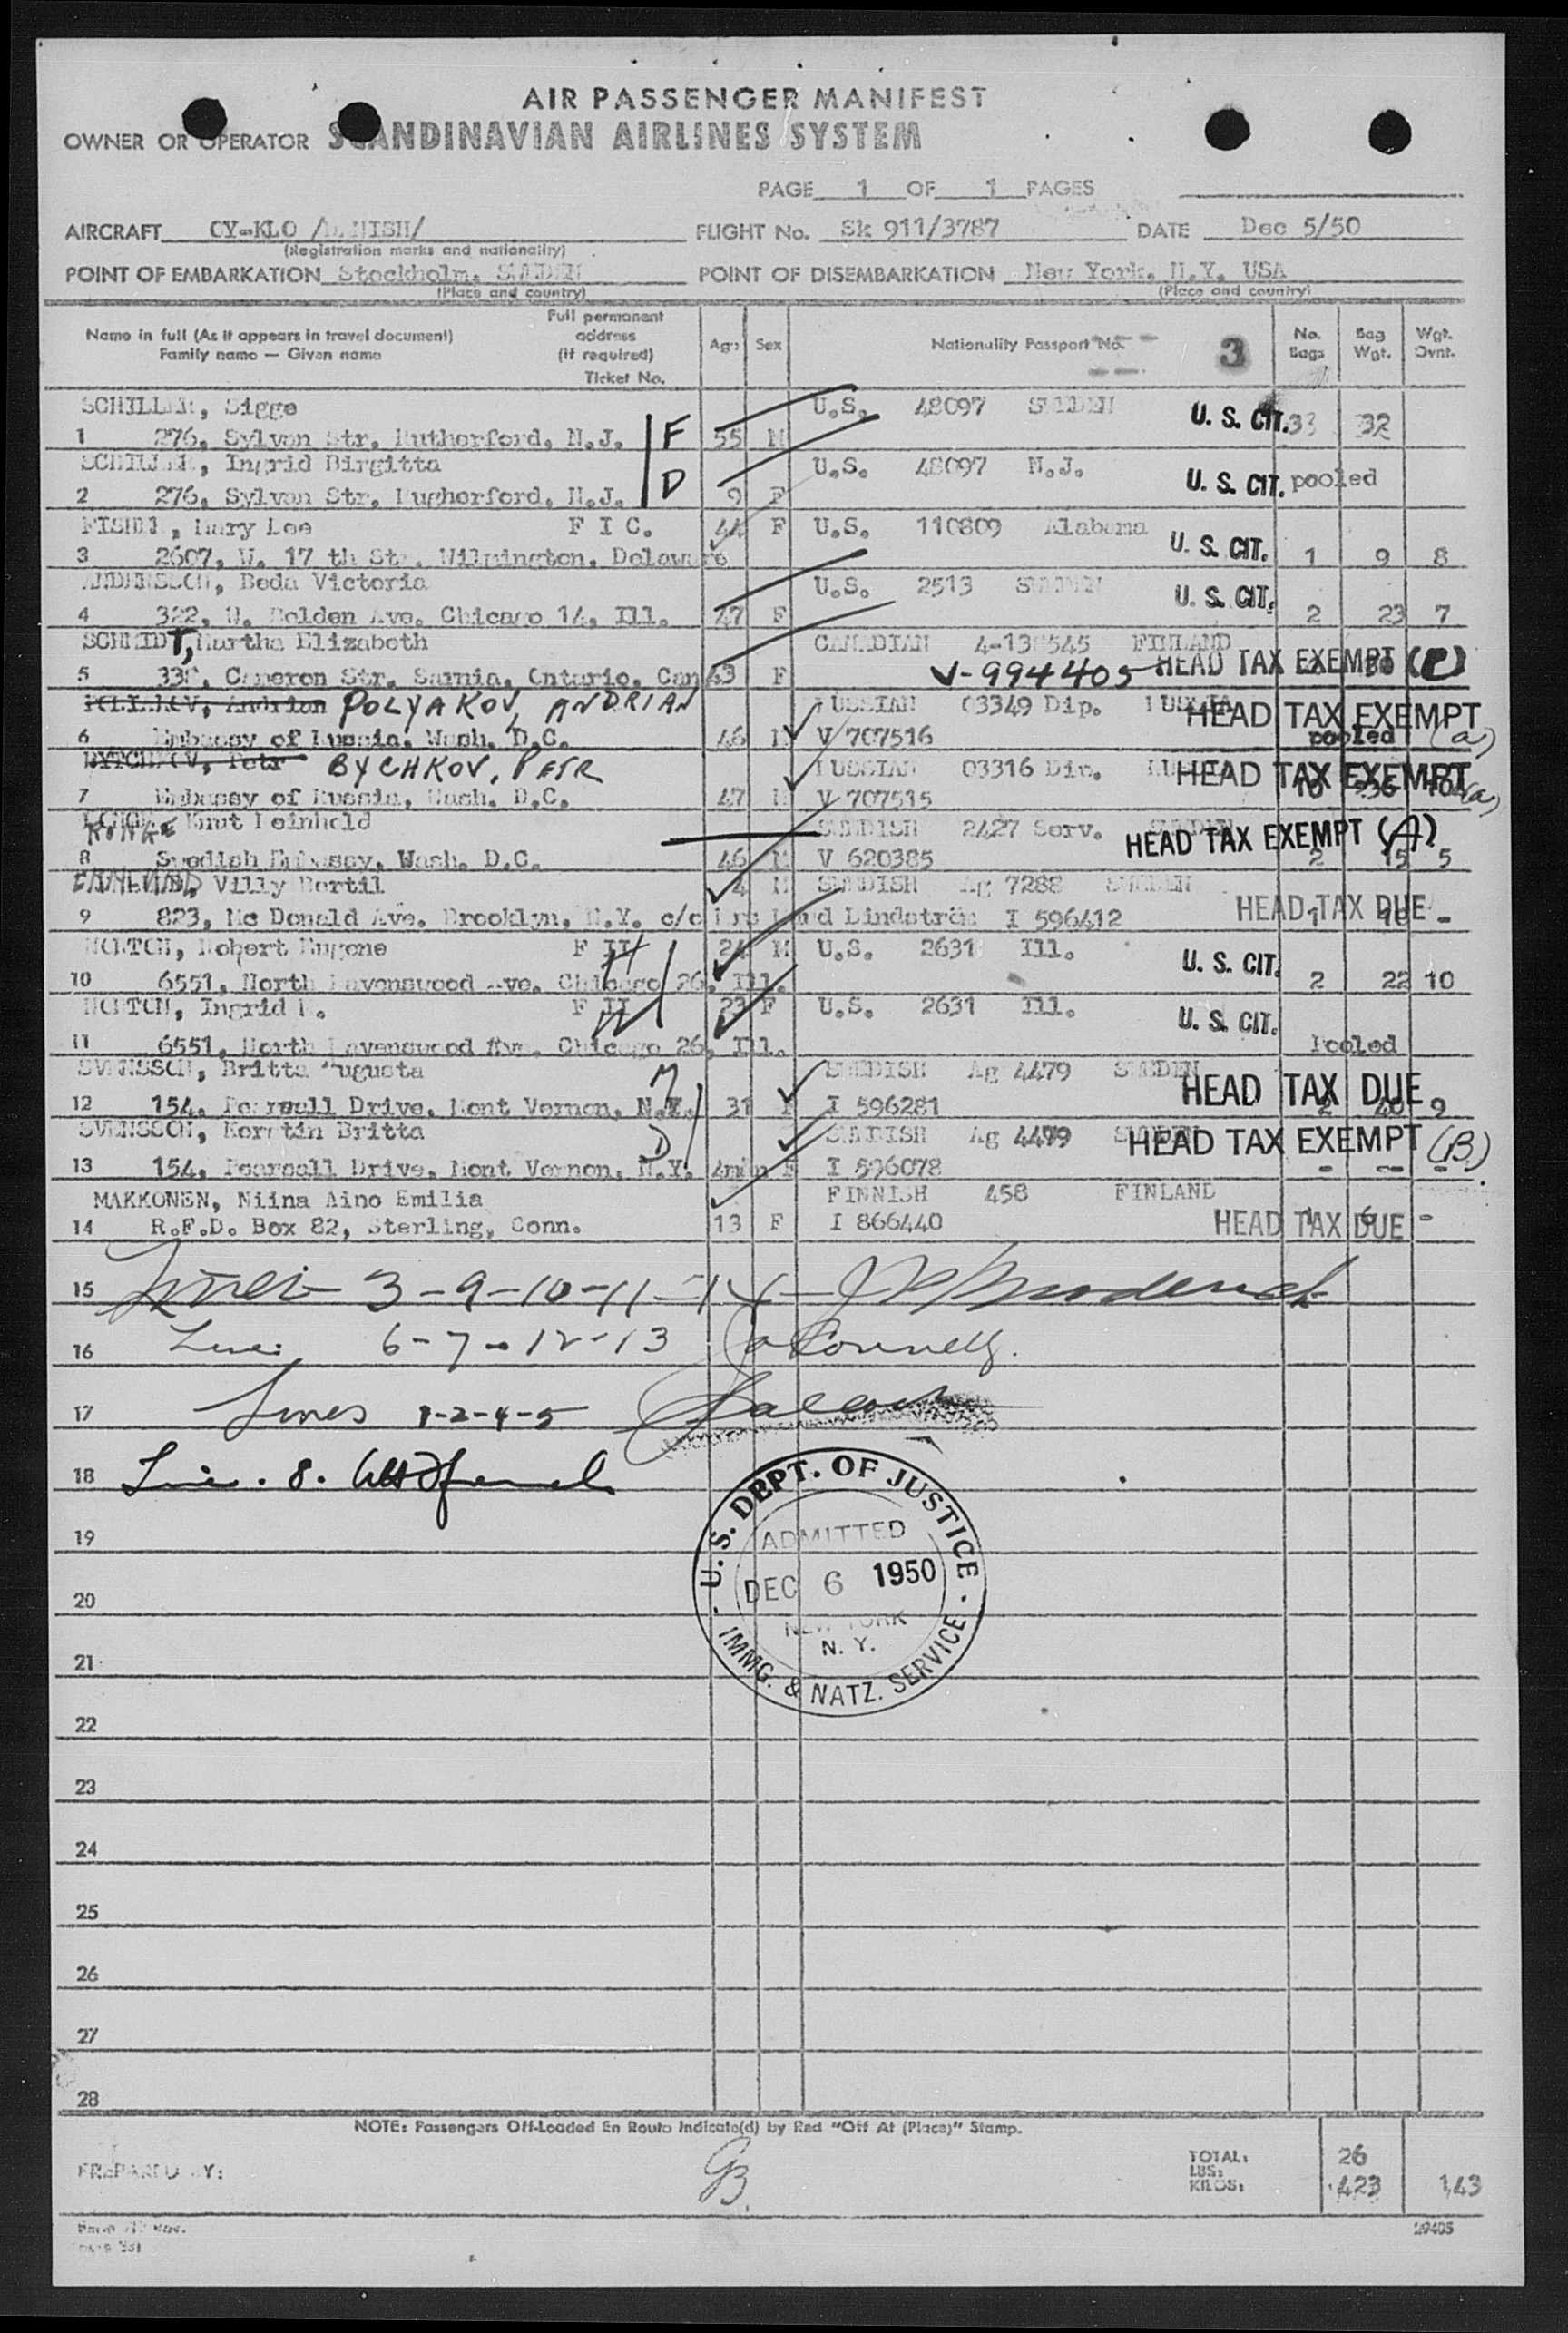 AIR PASSENGER MANIFEST
OWNER OR OPERATOR SCANDINAVIAN AIRLINES SYSTEM
PAGE 1 OF 1 PAGES
AIRCRAFT OY-KLO /DANISH/ FLIGHT No. Sk 911/3787 DATE Dec 5/50
(Registration marks and nationality)
POINT OF EMBARKATION Stockholm, SWEDEN POINT OF DISEMBARKATION New York, N.Y. USA
(Place and country) (Place and country)
Name in full (As it appears in travel document) Family name — Given name Full permanent address (if required) Ticket No. Age Sex Nationality Passport No. 3 No. Bags Bag Wgt. Wgt. Ovnt.
SCHILLER, Sigge U.S. 48097 SWEDEN U. S. CIT. 33 32
1 276, Sylvan Str. Rutherford, N.J. F 55 M
SCHILLER, Ingrid Birgitta U.S. 48097 N.J. U. S. CIT. pooled
2 276, Sylvan Str. Rugherford, N.J. D 9 F
Mary Lee F I C. 44 F U.S. 110809 Alabama U. S. CIT.
3 2607, W. 17 th Str. Wilmington, Delaware 1 9 8
ANDERSSON, Beda Victoria U.S. 2513 SWEDEN U. S. CIT.
4 322, W. Belden Ave. Chicago 14, Ill. 47 F 2 23 7
SCHMIDT, Martha Elizabeth CANADIAN FINLAND
5 Cameron Str. Sarnia, Ontario, Can 43 F V-994405 HEAD TAX EXEMPT
POLYAKOV, ANDRIAN RUSSIAN 03349 Dip. RUSSIA HEAD TAX EXEMPT
6 Embassy of Russia, Wash. D.C. 46 M V 707516 pooled (a)
BYTCHKOV, Petr BYCHKOV, PETR RUSSIAN 03316 Dip. HEAD TAX EXEMPT
7 Embassy of Russia, Wash. D.C. 47 M V 707515 (a)
Knut Reinhold SWEDISH 2427 Serv. SWEDEN HEAD TAX EXEMPT (A)
8 Swedish Embassy, Wash. D.C. 46 M V 620385 2 15 5
Villy Bertil 4 M SWEDISH Ag 7288 SWEDEN
9 823, Mc Donald Ave. Brooklyn, N.Y. c/o Mrs Lindström I 596412 HEAD TAX DUE 1 -
NORTON, Robert Eugene F II 24 M U.S. 2631 Ill. U. S. CIT.
10 6551, North Ravenswood Ave. Chicago 26, Ill. 2 22 10
NORTON, Ingrid F II 23 F U.S. 2631 Ill. U. S. CIT.
11 6551, North Ravenswood Ave. Chicago 26, Ill. Pooled
SVENSSON, Britta Augusta M SWEDISH Ag 4479 SWEDEN
12 154, Pearsall Drive, Mont Vernon, N.Y. 31 F I 596281 HEAD TAX DUE 2 40 9
SVENSSON, Kerstin Britta D SWEDISH Ag 4479 SWEDEN HEAD TAX EXEMPT (B)
13 154, Pearsall Drive, Mont Vernon, N.Y. 4mån F I 596078 - - -
MAKKONEN, Niina Aino Emilia FINNISH 458 FINLAND
14 R.F.D. Box 82, Sterling, Conn. 13 F I 866440 HEAD TAX DUE 1 6 -
15 Lines 3-9-10-11-14
16 6-7-12-13 O'Connell
17 Lines 1-2-4-5
18 8.
U. S. DEPT. OF JUSTICE
ADMITTED
DEC 6 1950
NEW YORK
N. Y.
IMMG. & NATZ. SERVICE
19
20
21
22
23
24
25
26
27
28
NOTE: Passengers Off-Loaded En Route Indicate(d) by Red "Off At (Place)" Stamp.
PREPARED BY: GB. TOTAL: 26
LBS:
KILOS: 423 143
29405